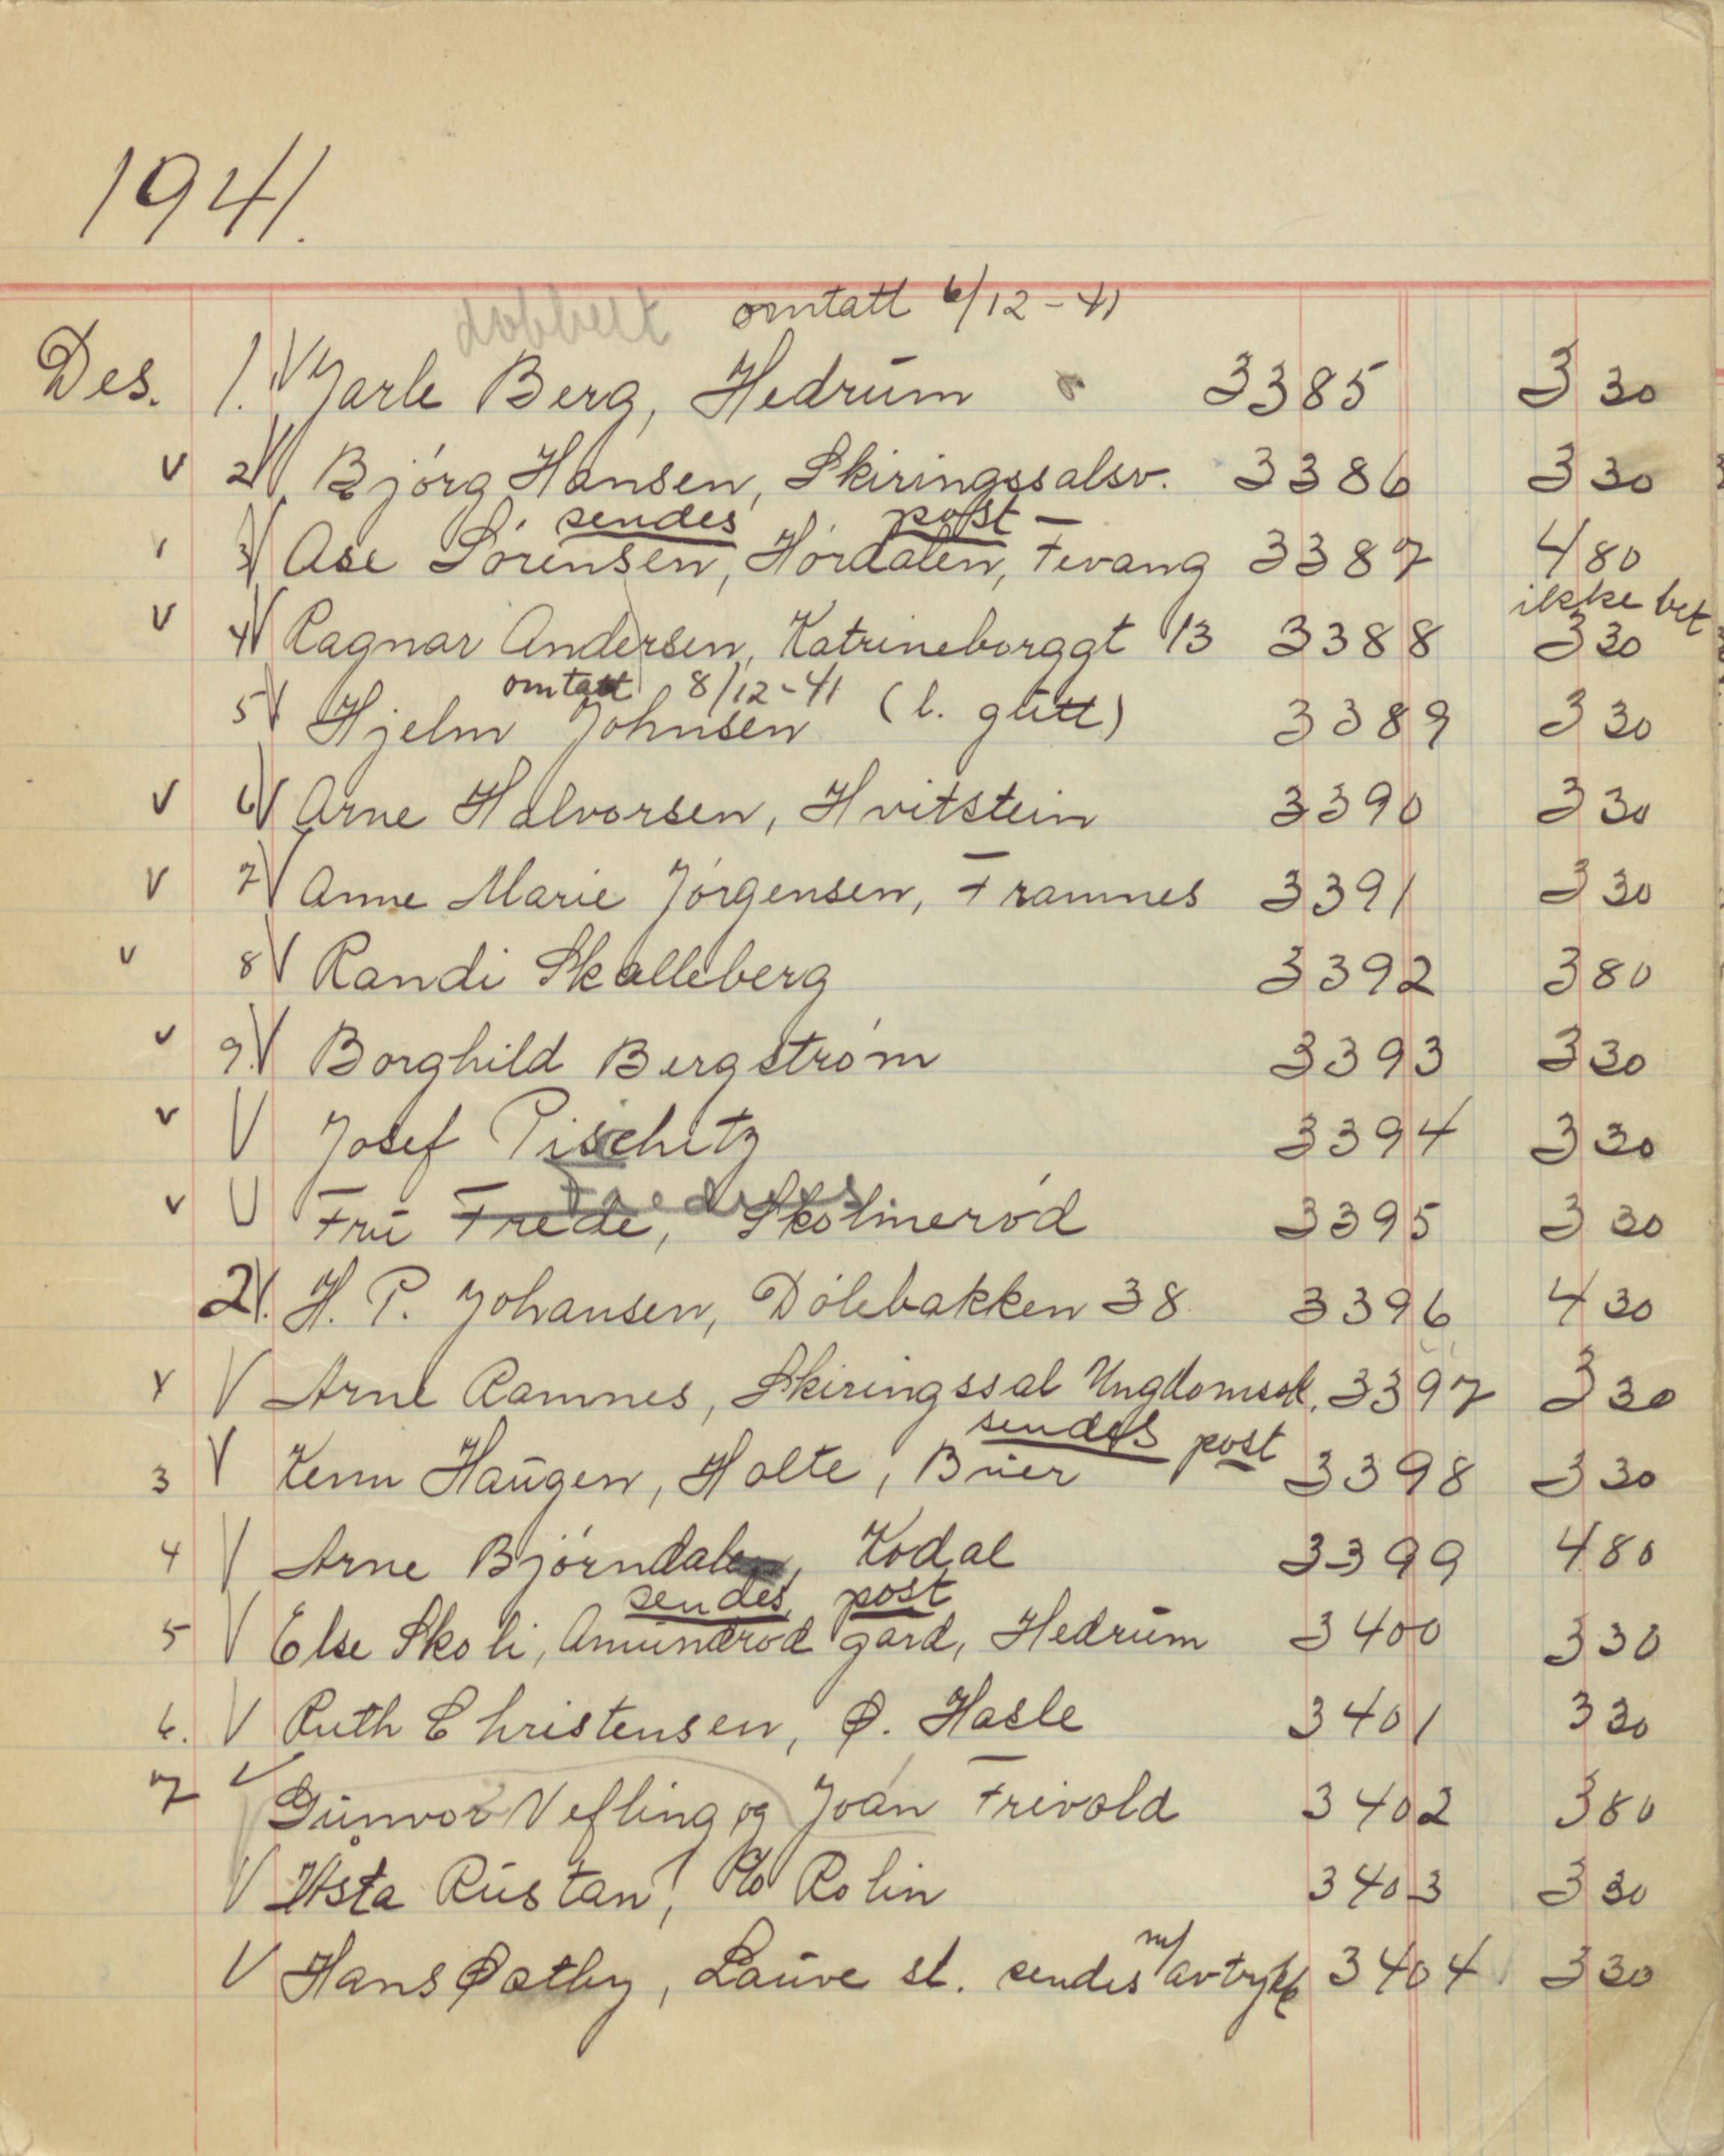 1941.
dobbelt omtatt 6/12-41
Des. 1. V Jarle Berg, Hedrum 3385 3 30
v 2 V Bjørg Hansen, Skiringssalsv. 3386 3 30
sendes post
3 V Åse Sørensen, Hørdalen, Fevang 3387 4 80
ikke bet
v 4 V Ragnar Andersen, Katrineborggt 13 3388 3 30
omtatt 8/12-41
5 V Hjelm Johnsen (l. gutt) 3389 3 30
v 6 V Arne Halvorsen, Hvitstein 3390 3 30
v 7 V Anne Marie Jørgensen, Framnes 3391 3 30
v 8 V Randi Skalleberg 3392 3 80
v 9. V Borghild Bergstrøm 3393 3 30
v V Josef Pischitz 3394 3 30
v V Fru Frede, Skolmerød 3395 3 30
2 V. H. P. Johansen, Dølebakken 38 3396 4 30
v V Arne Ramnes, Skiringssal Ungdomssk. 3397 3 30
sendes post
3 V Kenn Haugen, Holte, Buer 3398 3 30
4 V Arne Bjørndalen, Kodal 3399 4 80
sendes post
5 V Else Skoli, Amundrød gård, Hedrum 3400 3 30
6. V Ruth Christensen, Ø. Hasle 3401 3 30
7 V Gunvor Vefling og Joan Frivold 3402 3 80
V Åsta Rustan, c/o Rolin 3403 3 30
V Hans Østby, Lauve st. sendes m/ avtrykk 3404 3 30